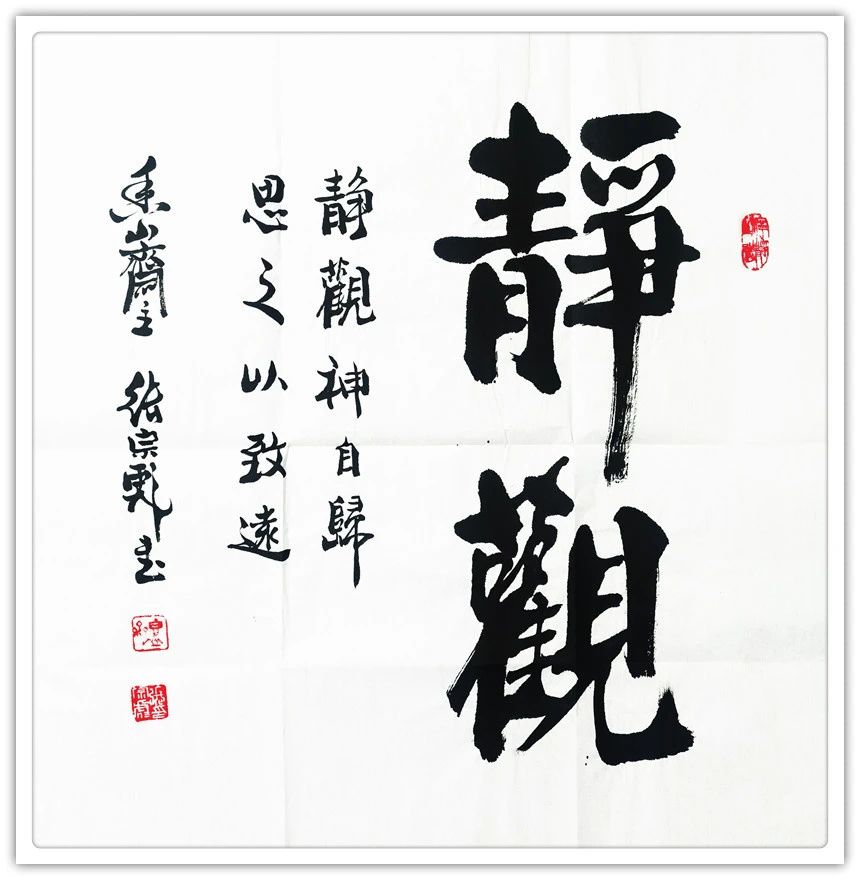 靜觀
静觀神自歸
思之以致遠
山齋主 张宗書